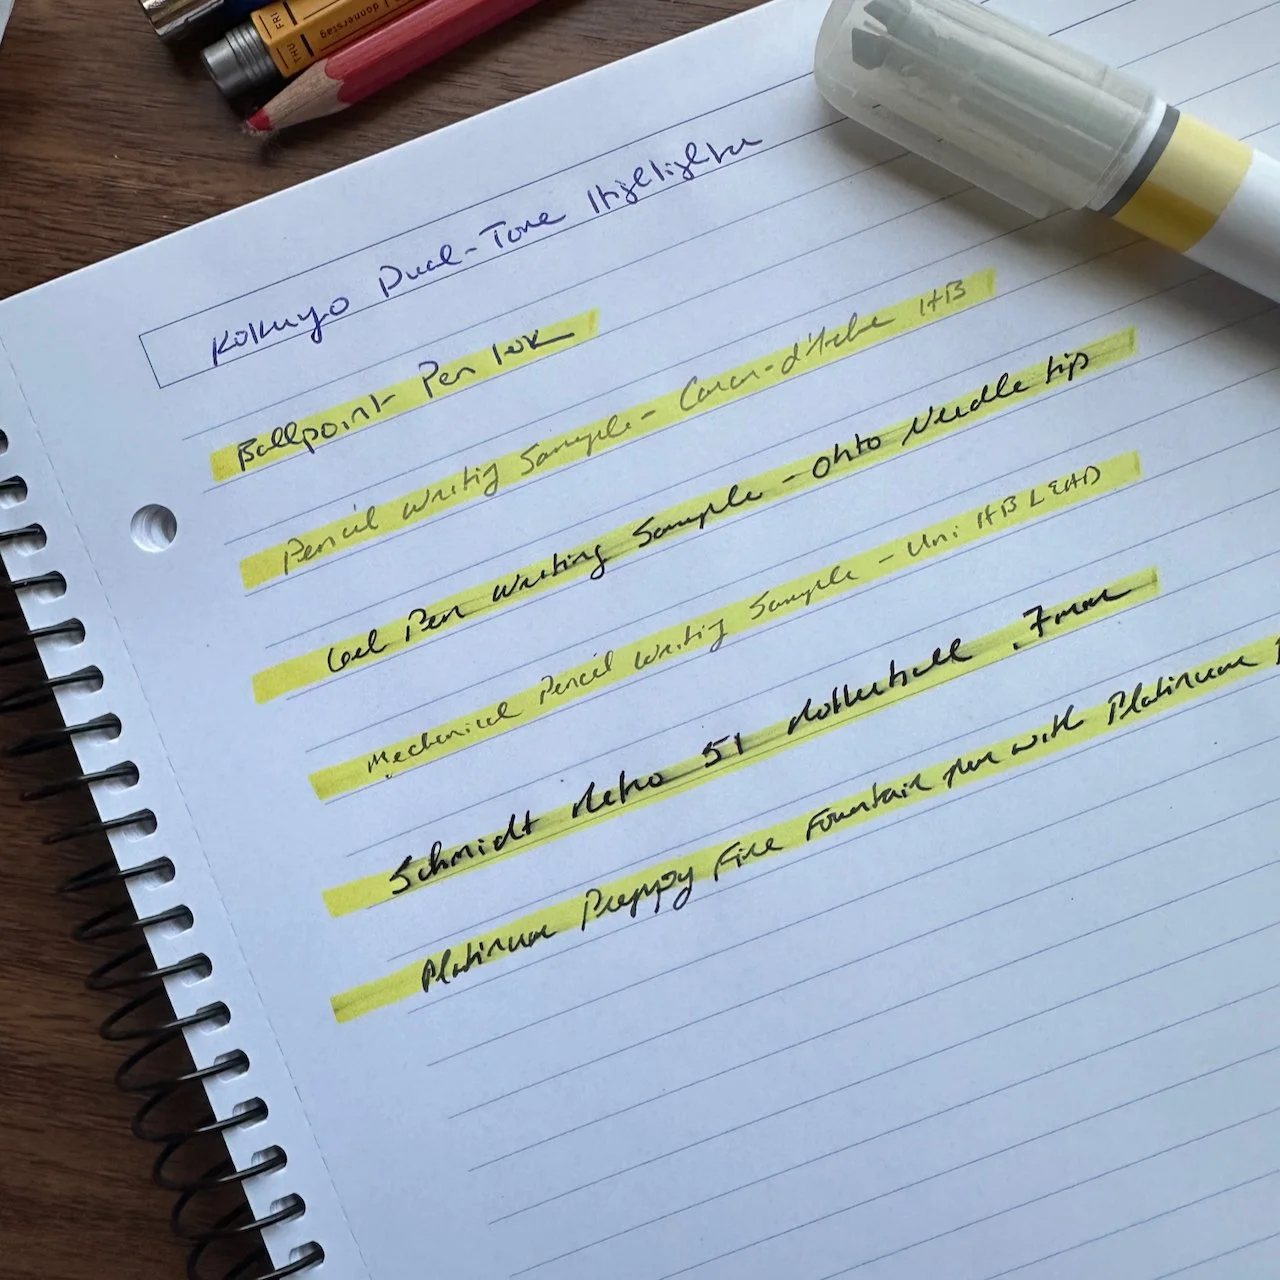 THU FRI
donnerstag
Kokuyo Dual-Tone Highlighter
Ballpoint Pen
Pencil Writing Sample - Caran-d'Ache HB
Gel Pen Writing Sample - Ohto Needle tip
Mechanical Pencil Writing Sample - Uni HB LEAD
Schmidt Retro 51 Rollerball .7mm
Platinum Preppy Fine Fountain Pen with Platinum